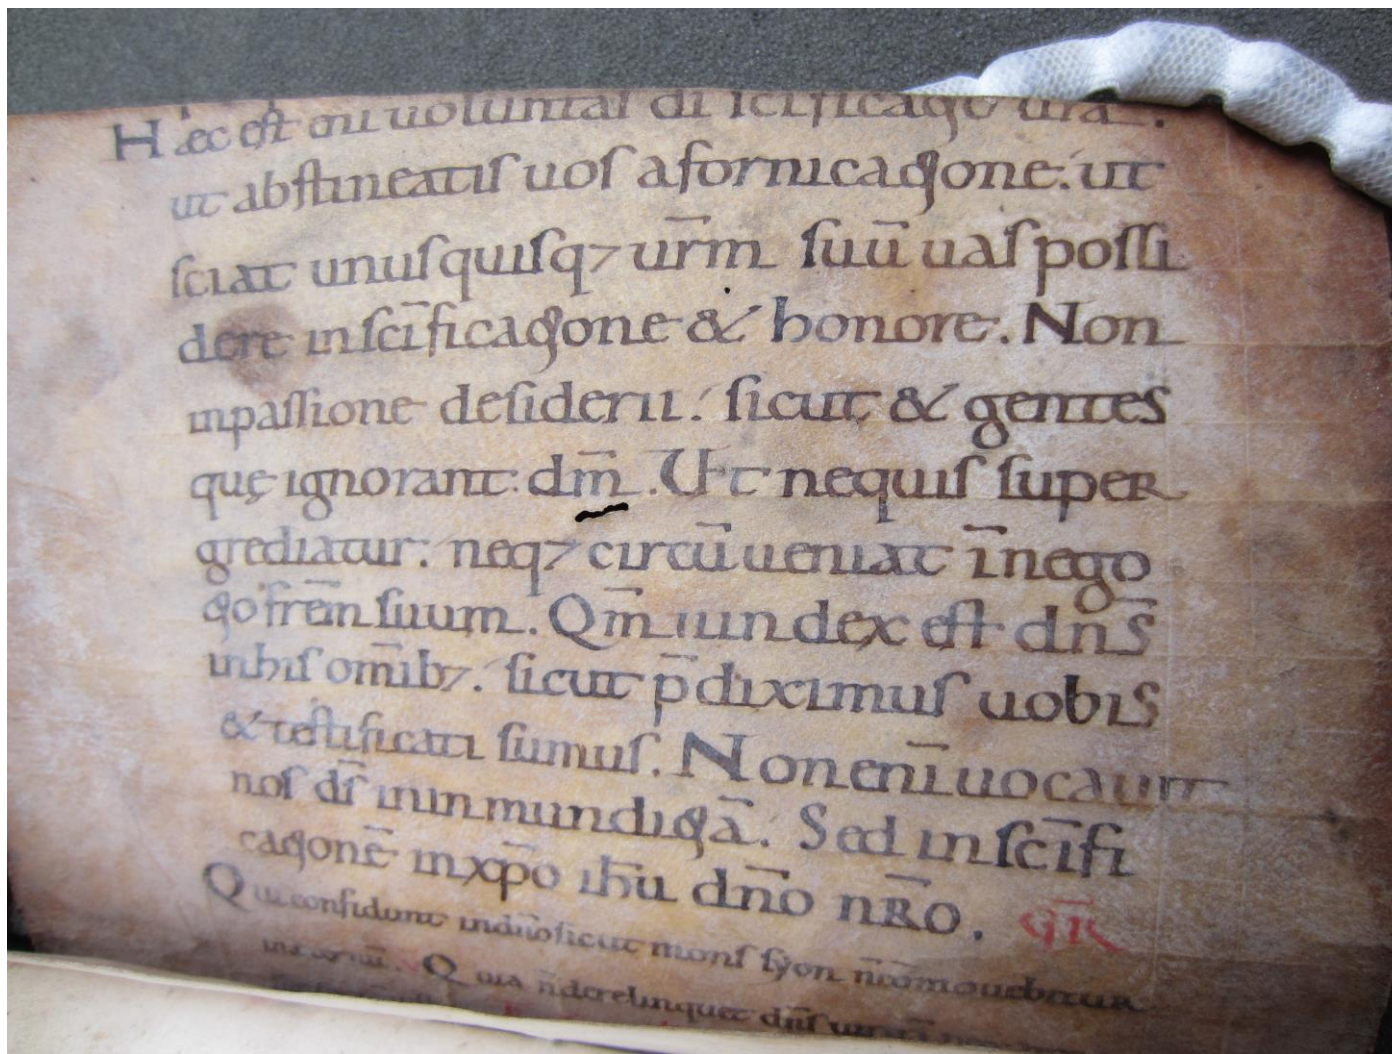 Haec est eni uoluntas di scificatio ura.
ut abstineatis uos a fornicatione. ut
sciat unusquisq; urm suū uas possi
dere in scīficatione & honore. Non
inpassione desiderii. sicut & gentes
quę ignorant dm̄. Ut nequis super
grediatur. neq; circūueniat īnego
tio frem̄ suum. Qm̄ iundex est dn̄s
inhis om̄ib; sicut p̄diximus uobis
& testificati sumus. Non enī uocauit
nos ds̄ in inmundit iā. Sed in scīfi
cationē inxp̄o ih̄u dn̄o nr̄o. GR̄
Qui confidunt in dn̄o sicut mons syon n̄ cōmouebitur
Quia n̄ derelinquet dn̄s